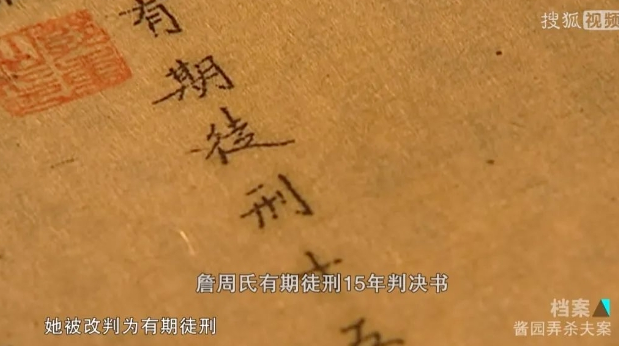 搜狐视频
有期徒刑十五
詹周氏有期徒刑15年判决书
她被改判为有期徒刑
档案
酱园弄杀夫案